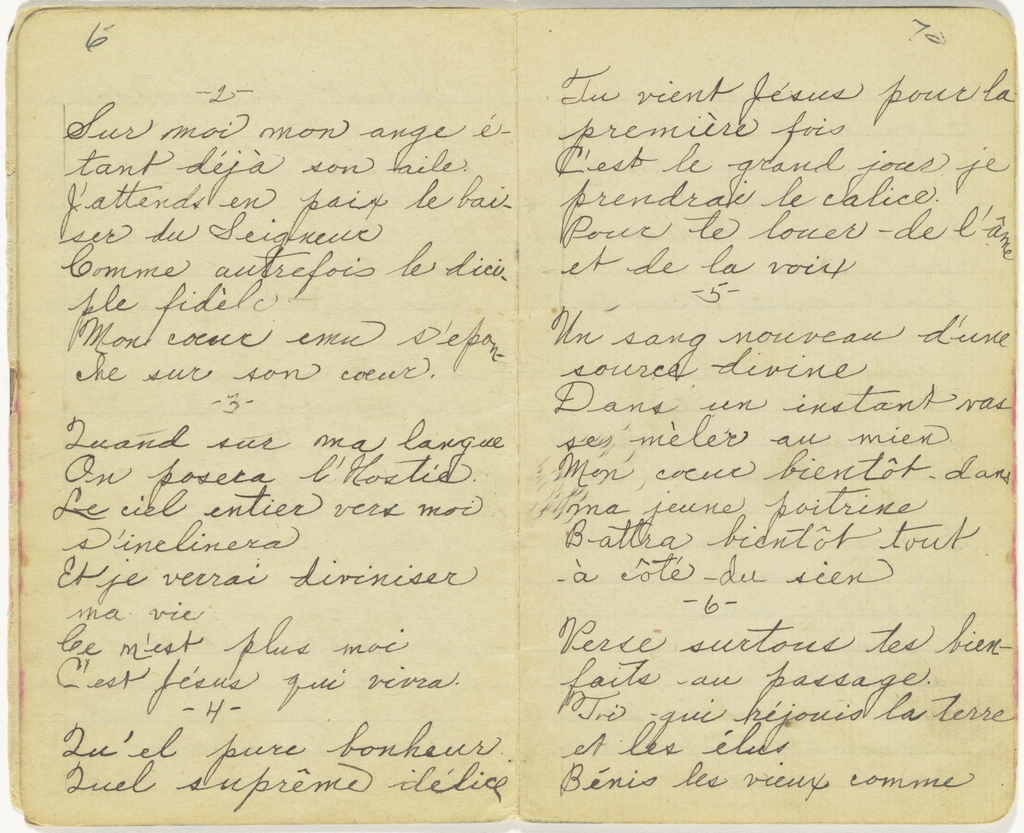 6
-2-
Sur moi mon ange é-
tant déjà son aile.
J'attends en paix le bai-
ser du Seigneur
Comme autrefois le dici-
ple fidèle
Mon cœur emu s'epan-
che sur son cœur.
-3-
Quand sur ma langue
On posera l'Hostie.
Le ciel entier vers moi
s'inclinera
Et je verrai diviniser
ma vie
Ce n'est plus moi
C'est Jésus qui vivra.
-4-
Qu'el pure bonheur.
Quel suprême délice
7
Tu vient Jésus pour la
première fois
C'est le grand jour je
prendrai le calice.
Pour te louer de l'âme
et de la voix
-5-
Un sang nouveau d'une
source divine
Dans un instant vas
se mèler au mien
Mon cœur bientôt dans
ma jeune poitrine
Battra bientôt tout
à côté du sien
-6-
Verse surtous tes bien-
faits au passage.
Toi qui réjouis la terre
et les élus
Bénis les vieux comme